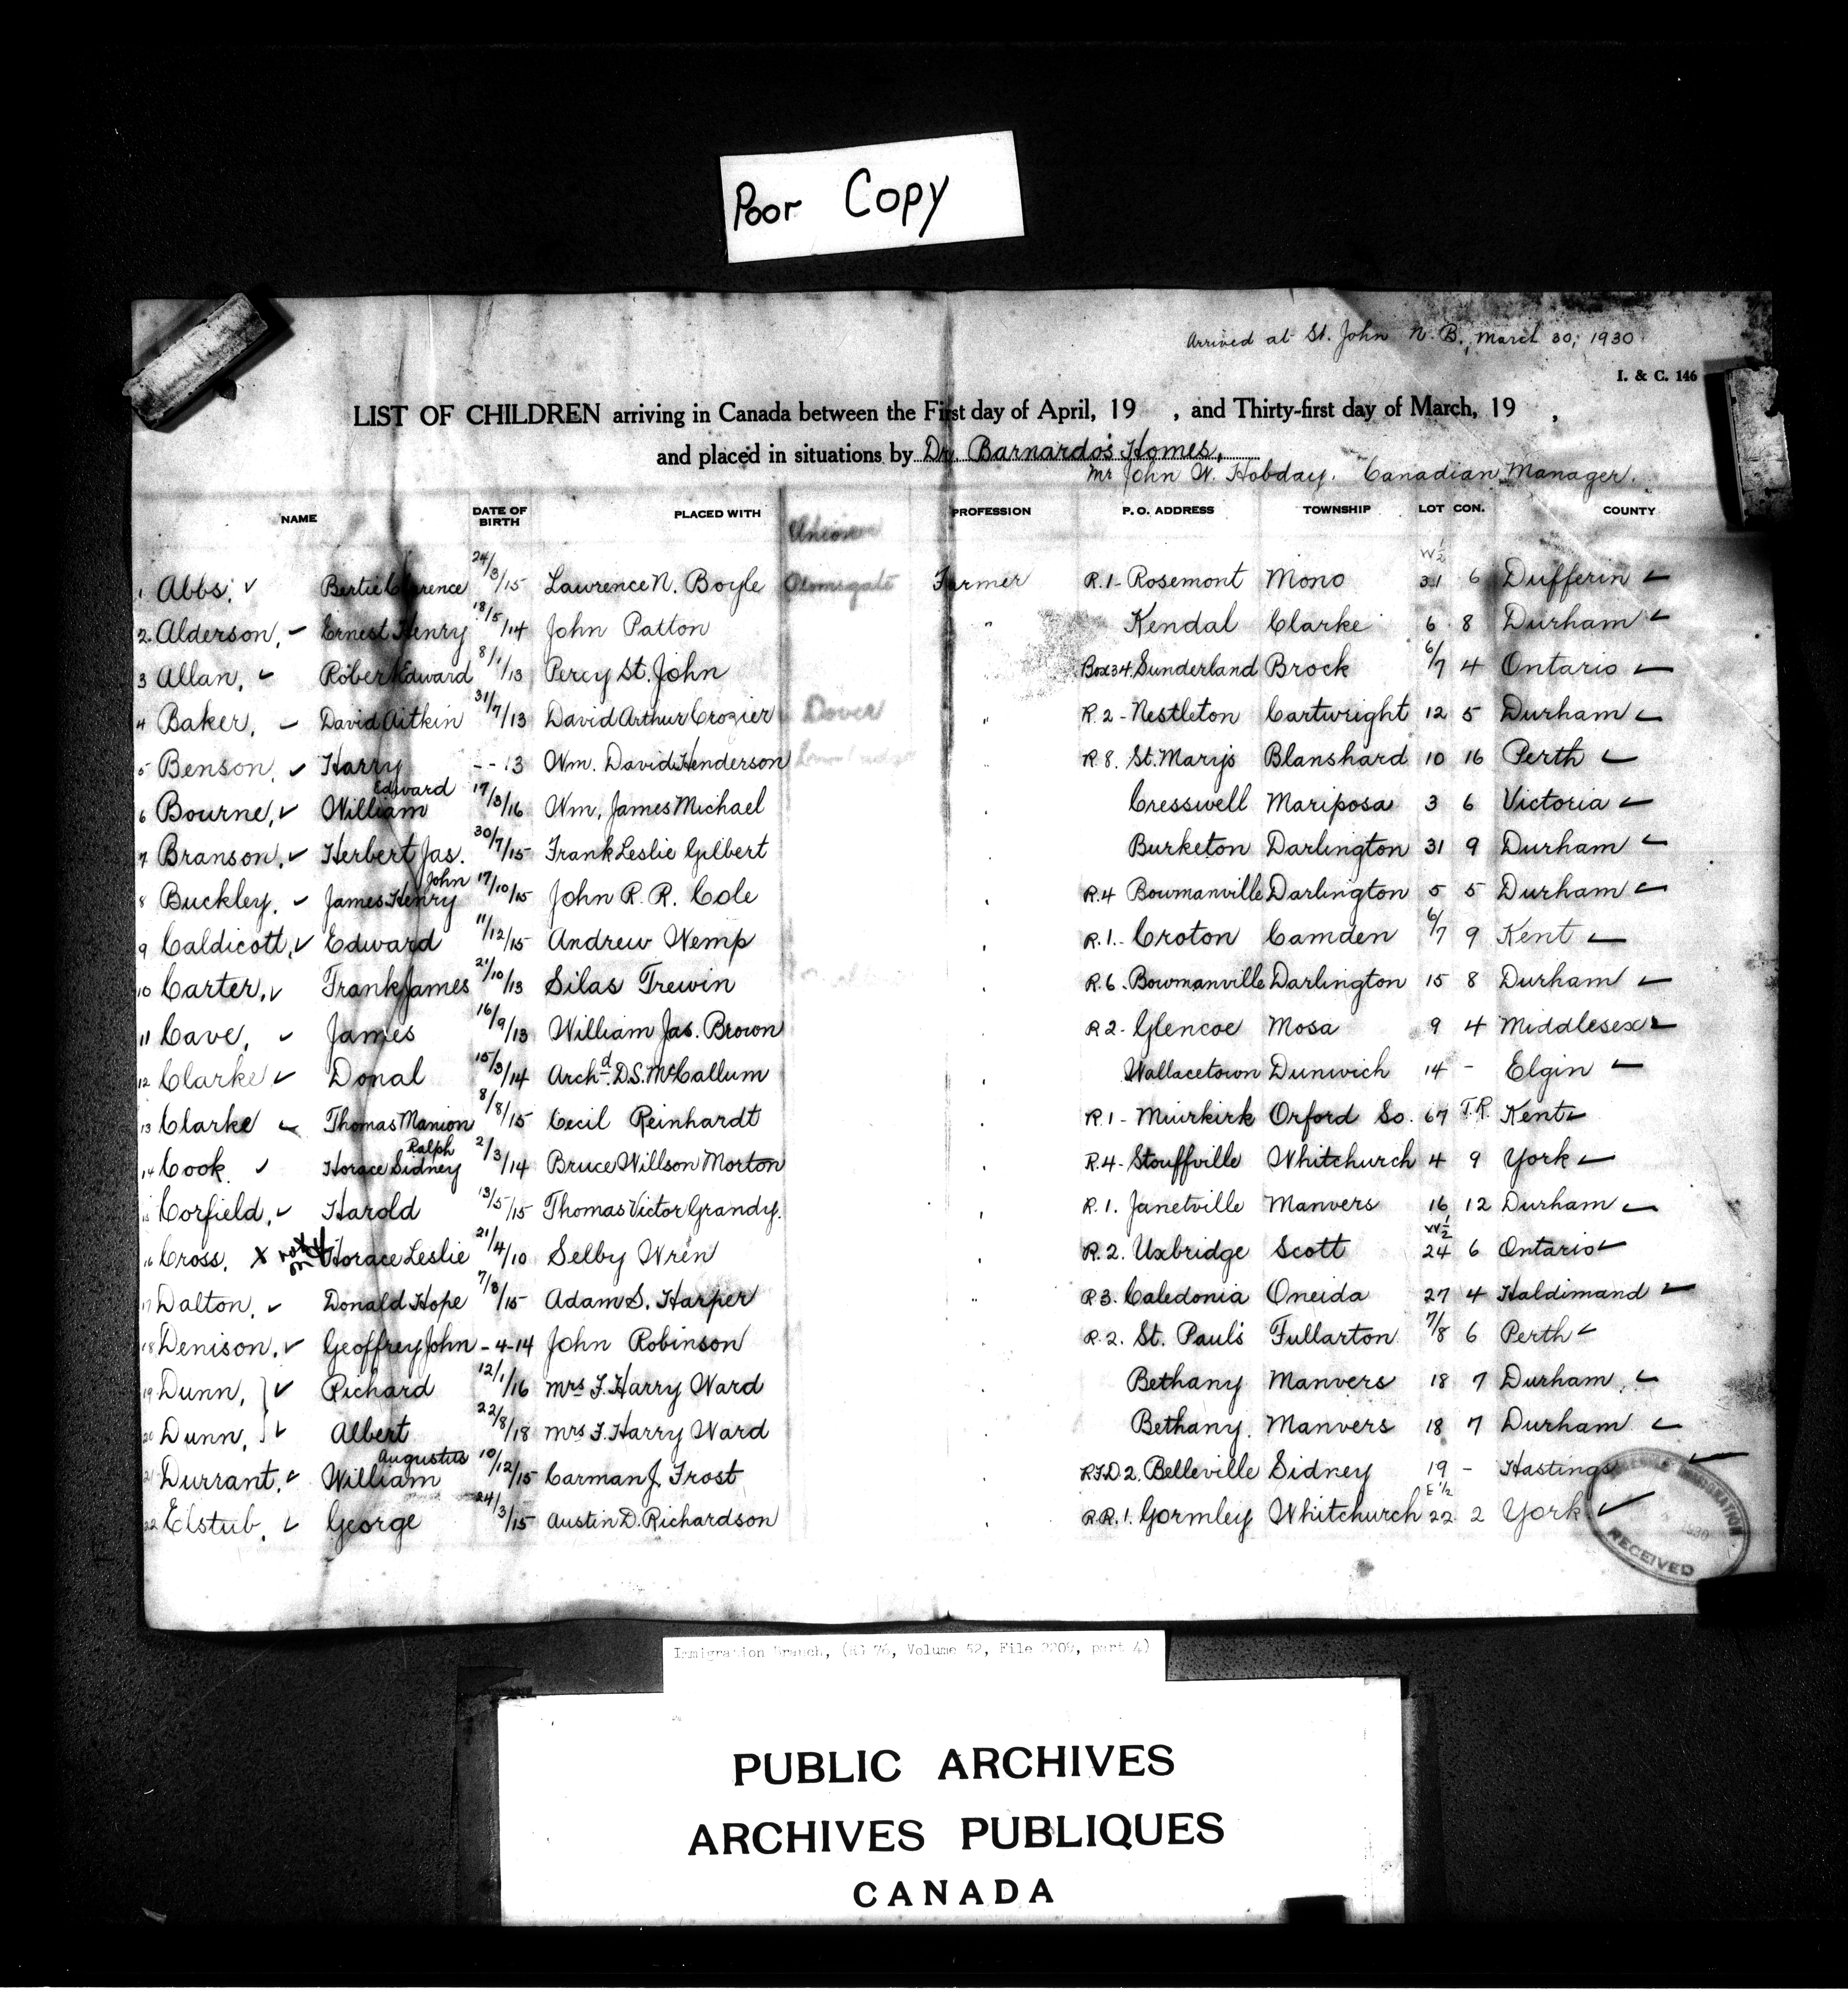 Poor Copy
Arrived at St. John N.B., March 30, 1930.
I. & C. 146
LIST OF CHILDREN arriving in Canada between the First day of April, 19 , and Thirty-first day of March, 19 ,
and placed in situations by Dr. Barnardo's Homes,
Mr John W. Hobday. Canadian Manager.
NAME DATE OF BIRTH PLACED WITH PROFESSION P. O. ADDRESS TOWNSHIP LOT CON. COUNTY
1 Abbs, ✓ Bertie Clarence 24/3/15 Lawrence N. Boyle Farmer R.1- Rosemont Mono W½ 31 6 Dufferin ✓
2 Alderson, ✓ Ernest Henry 18/5/14 John Patton " Kendal Clarke 6 8 Durham ✓
3 Allan, ✓ Robert Edward 8/1/13 Percy St. John Box 34. Sunderland Brock 6/7 4 Ontario ✓
4 Baker, ✓ David Aitkin 31/7/13 David Arthur Crozier Dover " R.2- Nestleton Cartwright 12 5 Durham ✓
5 Benson, ✓ Harry - - 13 Wm. David Henderson " R 8. St. Marys Blanshard 10 16 Perth ✓
6 Bourne, ✓ William Edward 17/3/16 Wm. James Michael " Cresswell Mariposa 3 6 Victoria ✓
7 Branson, ✓ Herbert Jas. 30/7/15 Frank Leslie Gilbert " Burketon Darlington 31 9 Durham ✓
8 Buckley, ✓ James Henry John 17/10/15 John R. R. Cole " R.4 Bowmanville Darlington 5 5 Durham ✓
9 Caldicott, ✓ Edward 11/12/15 Andrew Wemp " R.1.- Croton Camden 6/7 9 Kent ✓
10 Carter, ✓ Frank James 21/10/13 Silas Trewin " R.6. Bowmanville Darlington 15 8 Durham ✓
11 Cave, ✓ James 16/9/13 William Jas. Brown " R 2- Glencoe Mosa 9 4 Middlesex ✓
12 Clarke ✓ Donal 15/3/14 Archd. D.S. McCallum " Wallacetown Dunwich 14 - Elgin ✓
13 Clarke ✓ Thomas Manion 8/8/15 Cecil Reinhardt " R.1- Muirkirk Orford So. 67 T.R. Kent ✓
14 Cook ✓ Horace Sidney Ralph 2/3/14 Bruce Willson Morton " R.4- Stouffville Whitchurch 4 9 York ✓
15 Corfield, ✓ Harold 13/5/15 Thomas Victor Grandy. " R.1. Janetville Manvers 16 12 Durham ✓
16 Cross. X not Horace Leslie 21/4/10 Selby Wren " R.2. Uxbridge Scott W½ 24 6 Ontario ✓
17 Dalton, ✓ Donald Hope 7/8/15 Adam S. Harper " R 3. Caledonia Oneida 27 4 Haldimand ✓
18 Denison, ✓ Geoffrey John - 4-14 John Robinson R.2. St. Paul's Fullarton 7/8 6 Perth ✓
19 Dunn, } ✓ Richard 12/1/16 Mrs F. Harry Ward " Bethany Manvers 18 7 Durham. ✓
20 Dunn, } ✓ Albert 22/8/18 Mrs F. Harry Ward " Bethany. Manvers 18 7 Durham ✓
21 Durrant, ✓ William Augustus 10/12/15 Carman J. Frost " R.F.D.2. Belleville Sidney 19 - Hastings ✓
22 Elstub, ✓ George 24/3/15 Austin D. Richardson " R.R.1. Gormley Whitchurch E½ 22 2 York ✓
IMMIGRATION 1930 RECEIVED
Immigration Branch, (RG 76, Volume 52, File 2209, part 4)
PUBLIC ARCHIVES
ARCHIVES PUBLIQUES
CANADA